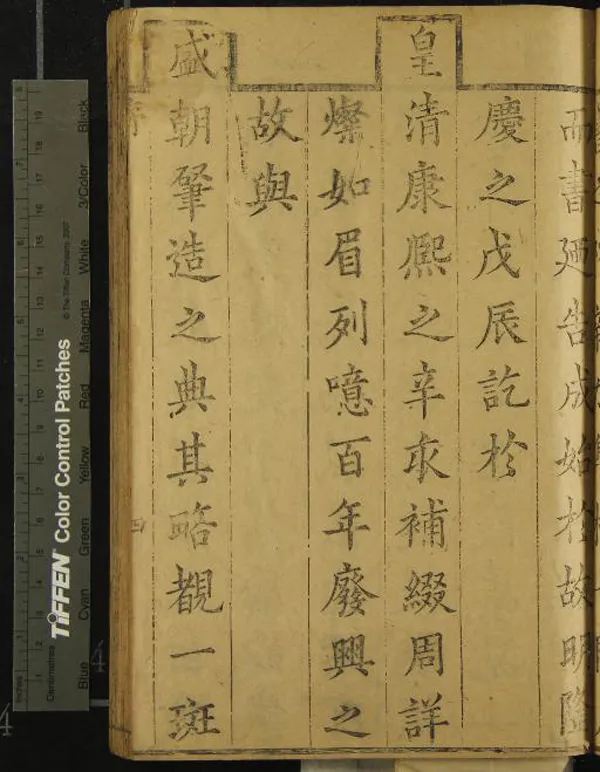 而書廼告成始於故明隆
慶之戊辰訖於
皇清康熙之辛亥補綴周詳
燦如眉列噫百年廢興之
故與
盛朝肇造之典其略覩一斑
序
四
TIFFEN Color Control Patches
© The Tiffen Company, 2007
Blue Cyan Green Yellow Red Magenta White 3/Color Black
Inches
Centimetres